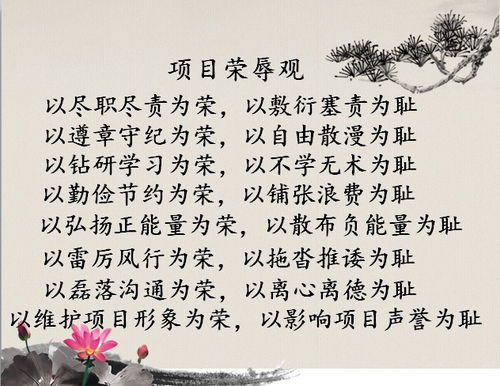 项目荣辱观
以尽职尽责为荣，以敷衍塞责为耻
以遵章守纪为荣，以自由散漫为耻
以钻研学习为荣，以不学无术为耻
以勤俭节约为荣，以铺张浪费为耻
以弘扬正能量为荣，以散布负能量为耻
以雷厉风行为荣，以拖沓推诿为耻
以磊落沟通为荣，以离心离德为耻
以维护项目形象为荣，以影响项目声誉为耻